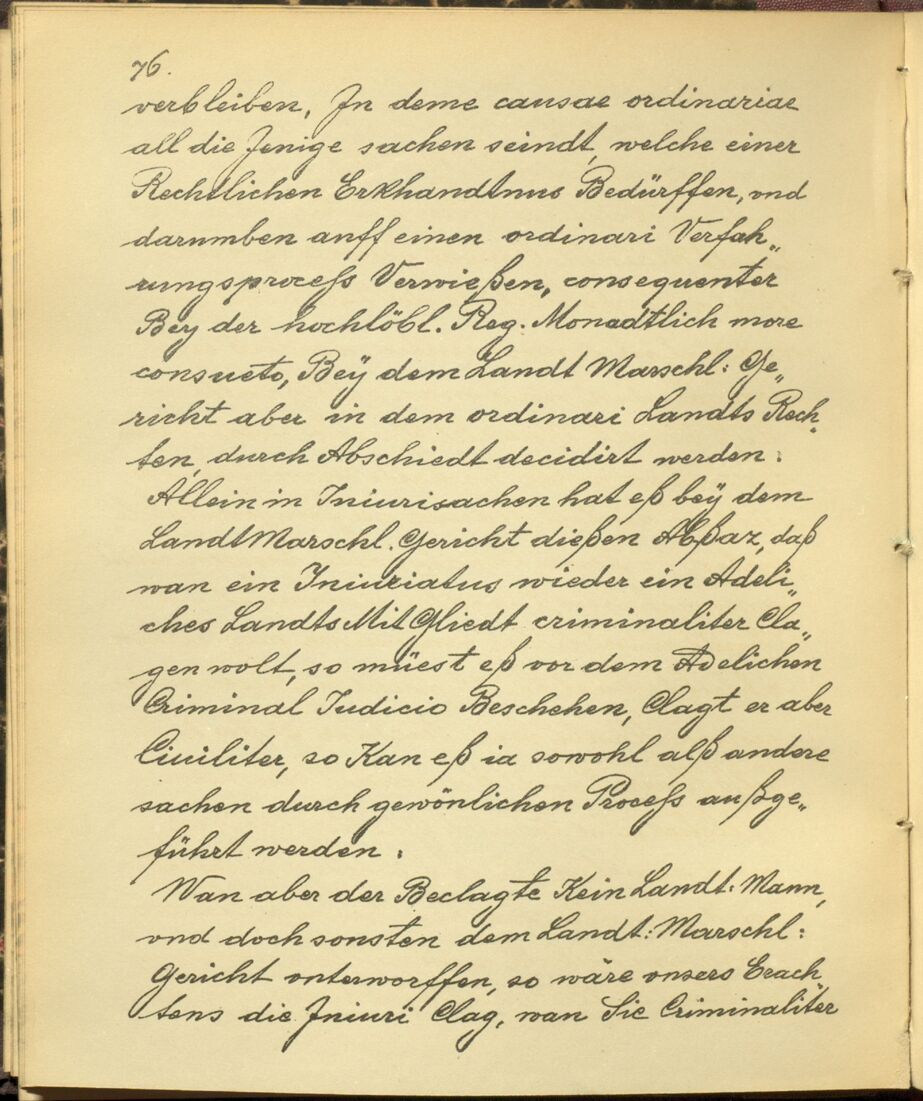 76.
verbleiben, In deme causae ordinariae
all die Jenige sachen seindt, welche einer
Rechtlichen Erkhandtnus Bedürffen, vnd
darumben auff einen ordinari Verfah„
rungsprocess Verwießen, consequenter
Bey der hochlöbl. Reg. Monadtlich more
consueto, Beÿ dem Landt Marschl: Ge„
richt aber in dem ordinari Landts Rech„
ten, durch Abschiedt decidirt werden.
Allein in Iniurisachen hat eß beÿ dem
Landt Marschl. Gericht dießen Abßaz, daß
wan ein Iniuriatus wieder ein Adeli„
ches Landts Mit Gliedt criminaliter Cla„
gen wolt, so müest eß vor dem Adelichen
Criminal Iudicio Beschehen, Clagt er aber
Ciuiliter, so Kan eß ia sowohl alß andere
sachen durch gewönlichen Process außge„
führt werden.
Wan aber der Beclagte Kein Landt: Mann,
vnd doch sonsten dem Landt: Marschl:
Gericht vnterworffen, so wäre vnsers Erach
tens die Iniuri Clag, wan Sie Criminaliter